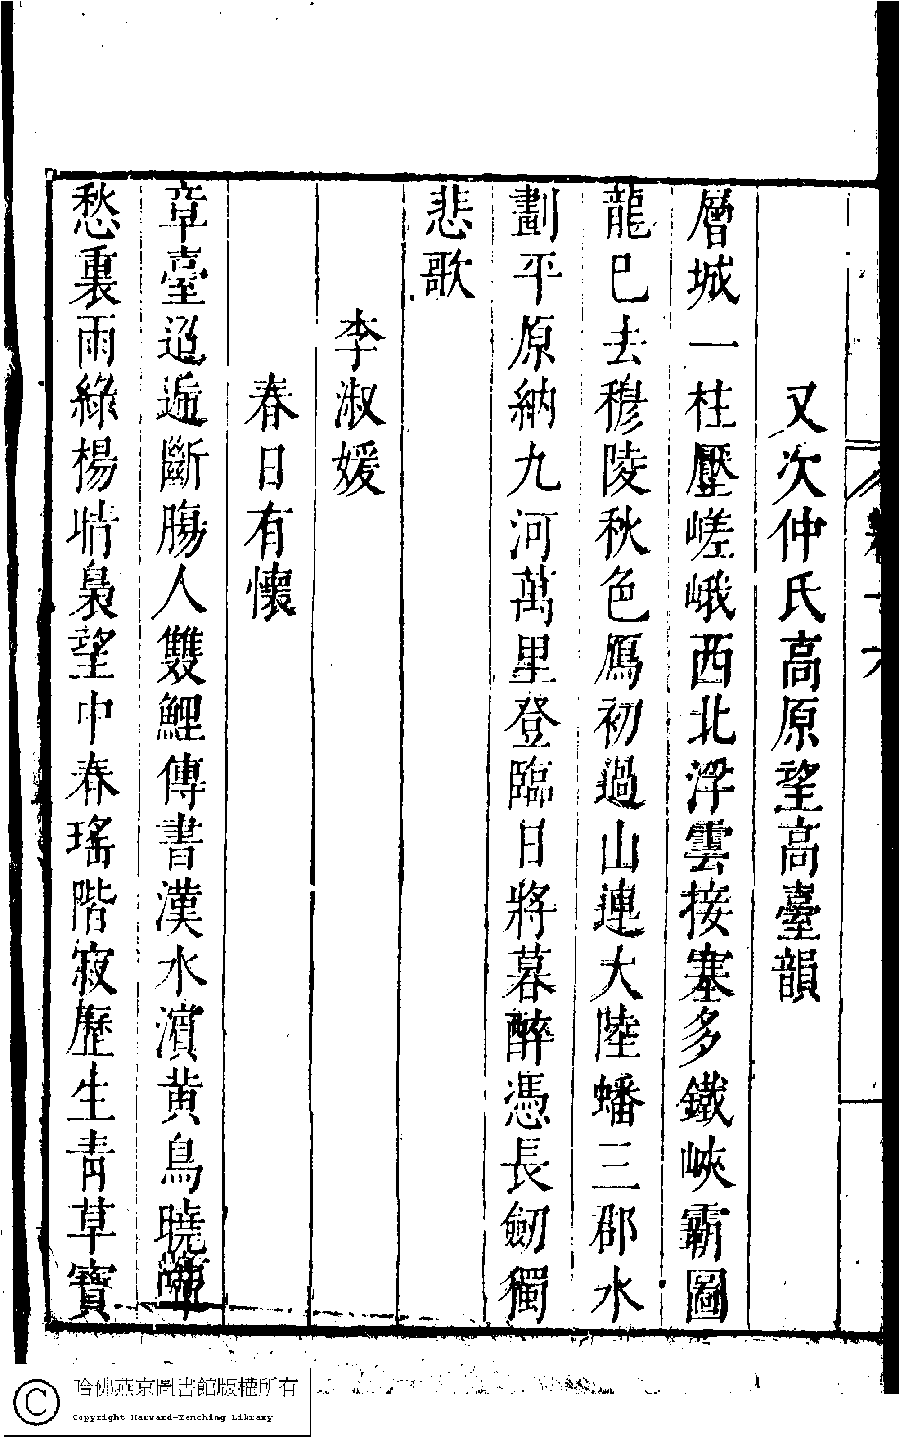 又次仲氏高原望高臺韻
層城一柱壓嵯峨西北浮雲接塞多鐵峽霸圖
龍已去穆陵秋色鴈初過山連大陸蟠三郡水
劃平原納九河萬里登臨日將暮醉憑長劒獨
悲歌
李淑媛
春日有懷
章臺迢遞斷膓人雙鯉傳書漢水濵黄鳥曉啼
愁裏雨綠楊晴裊望中春瑤階寂歷生青草寳
哈佛燕京圖書館版權所有
Copyright Harvard-Yenching Library